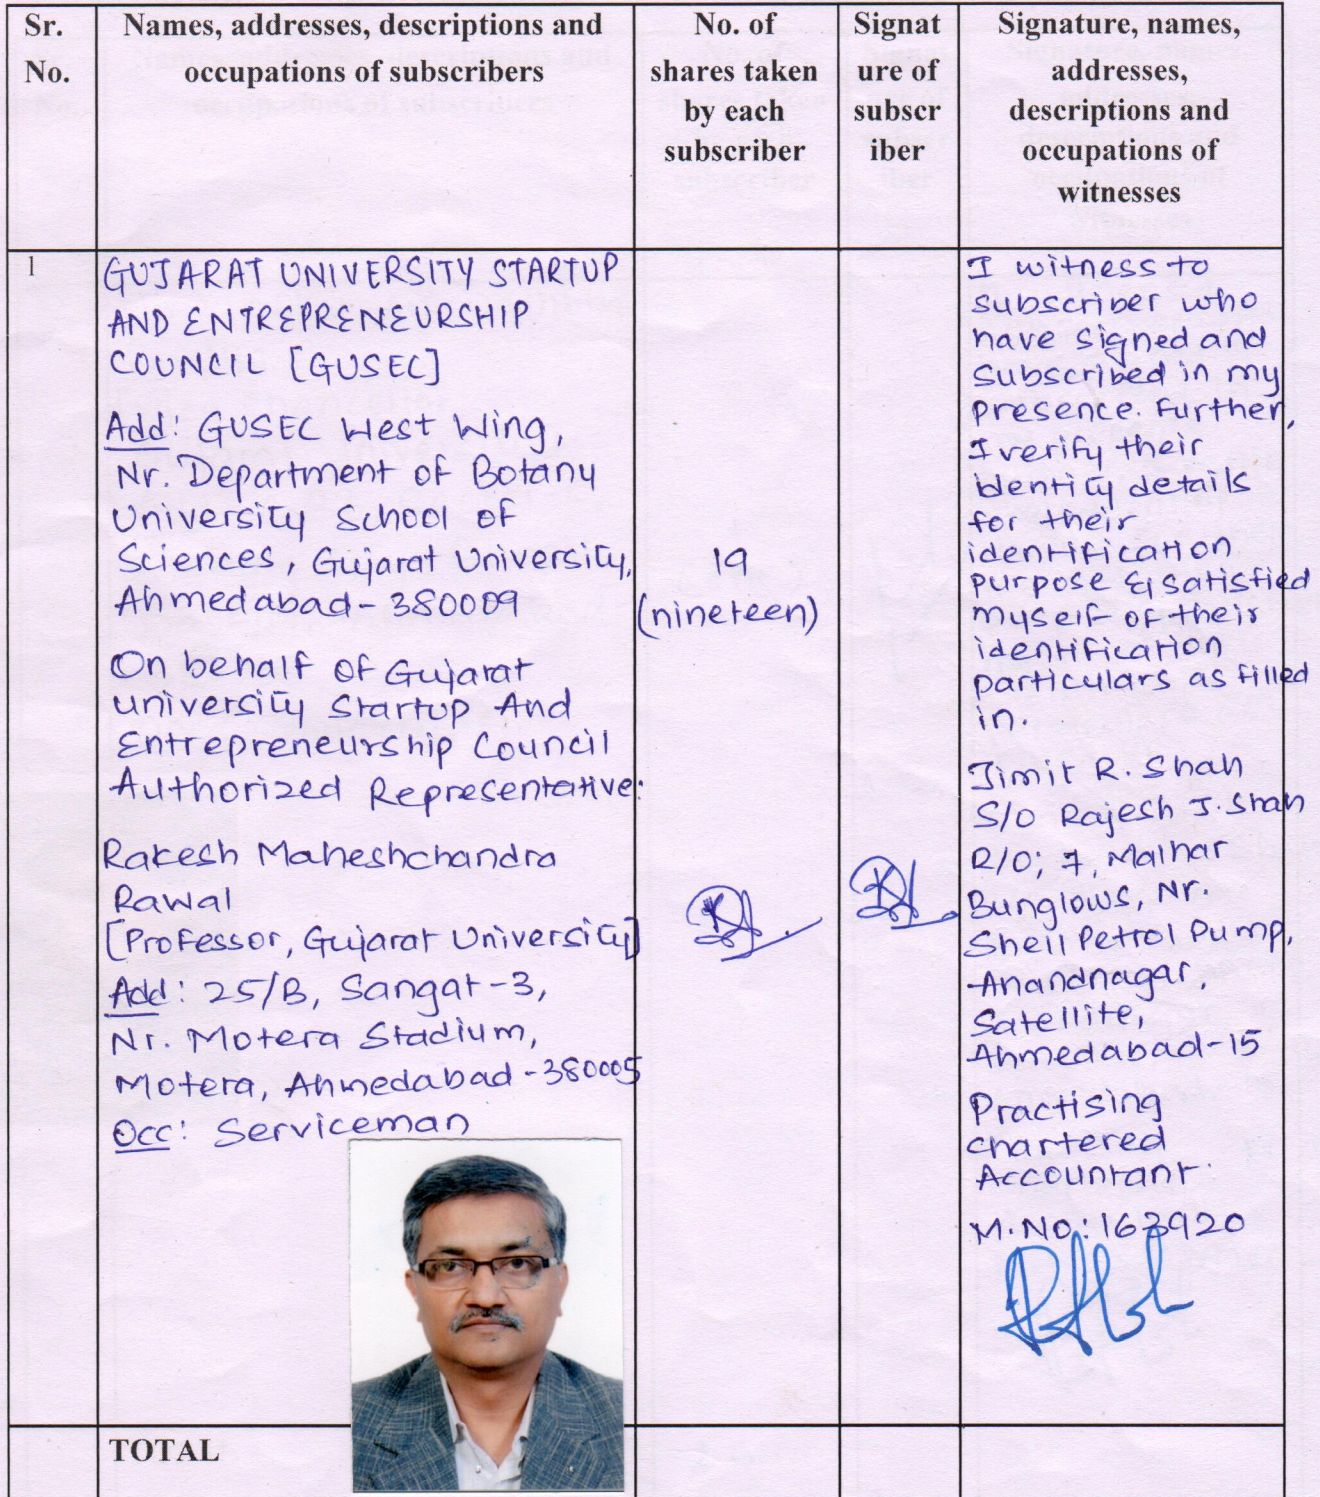 Sr.
No.
Names, addresses, descriptions and
occupations of subscribers
No. of
shares taken
by each
subscriber
Signat
ure of
subscr
iber
Signature, names,
addresses,
descriptions and
occupations of
witnesses
1
GUJARAT UNIVERSITY STARTUP
AND ENTREPRENEURSHIP
COUNCIL [GUSEC]
Add: GUSEC West Wing,
Nr. Department of Botany
University School of
Sciences, Gujarat University,
Ahmedabad-380009
On behalf of Gujarat
University Startup And
Entrepreneurship Council
Authorized Representative:
Rakesh Maheshchandra
Rawal
[Professor, Gujarat University]
Add: 25/B, Sangat-3,
Nr. Motera Stadium,
Motera, Ahmedabad-380005
Occ: Serviceman
19
(nineteen)
I witness to
subscriber who
have signed and
subscribed in my
presence. Further,
I verify their
identity details
for their
identification
purpose & satisfied
myself of their
identification
particulars as filled
in.
Jimit R. Shah
S/O Rajesh J. Shah
R/O; 7, Malhar
Bunglows, Nr.
Shell Petrol Pump,
Anandnagar,
Satellite,
Ahmedabad-15
Practising
Chartered
Accountant.
M.NO:163920
TOTAL